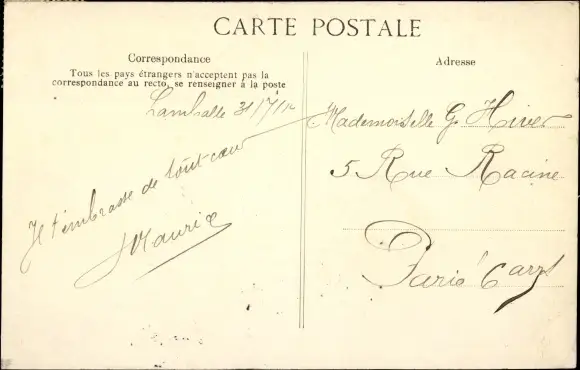 CARTE POSTALE
Correspondance
Tous les pays étrangers n'acceptent pas la
correspondance au recto, se renseigner à la poste
Lamballe 31/7/12
Je t'embrasse de tout cœur
Maurice
Adresse
Mademoiselle G. Hiver
5 Rue Racine
Paris 6 arrt